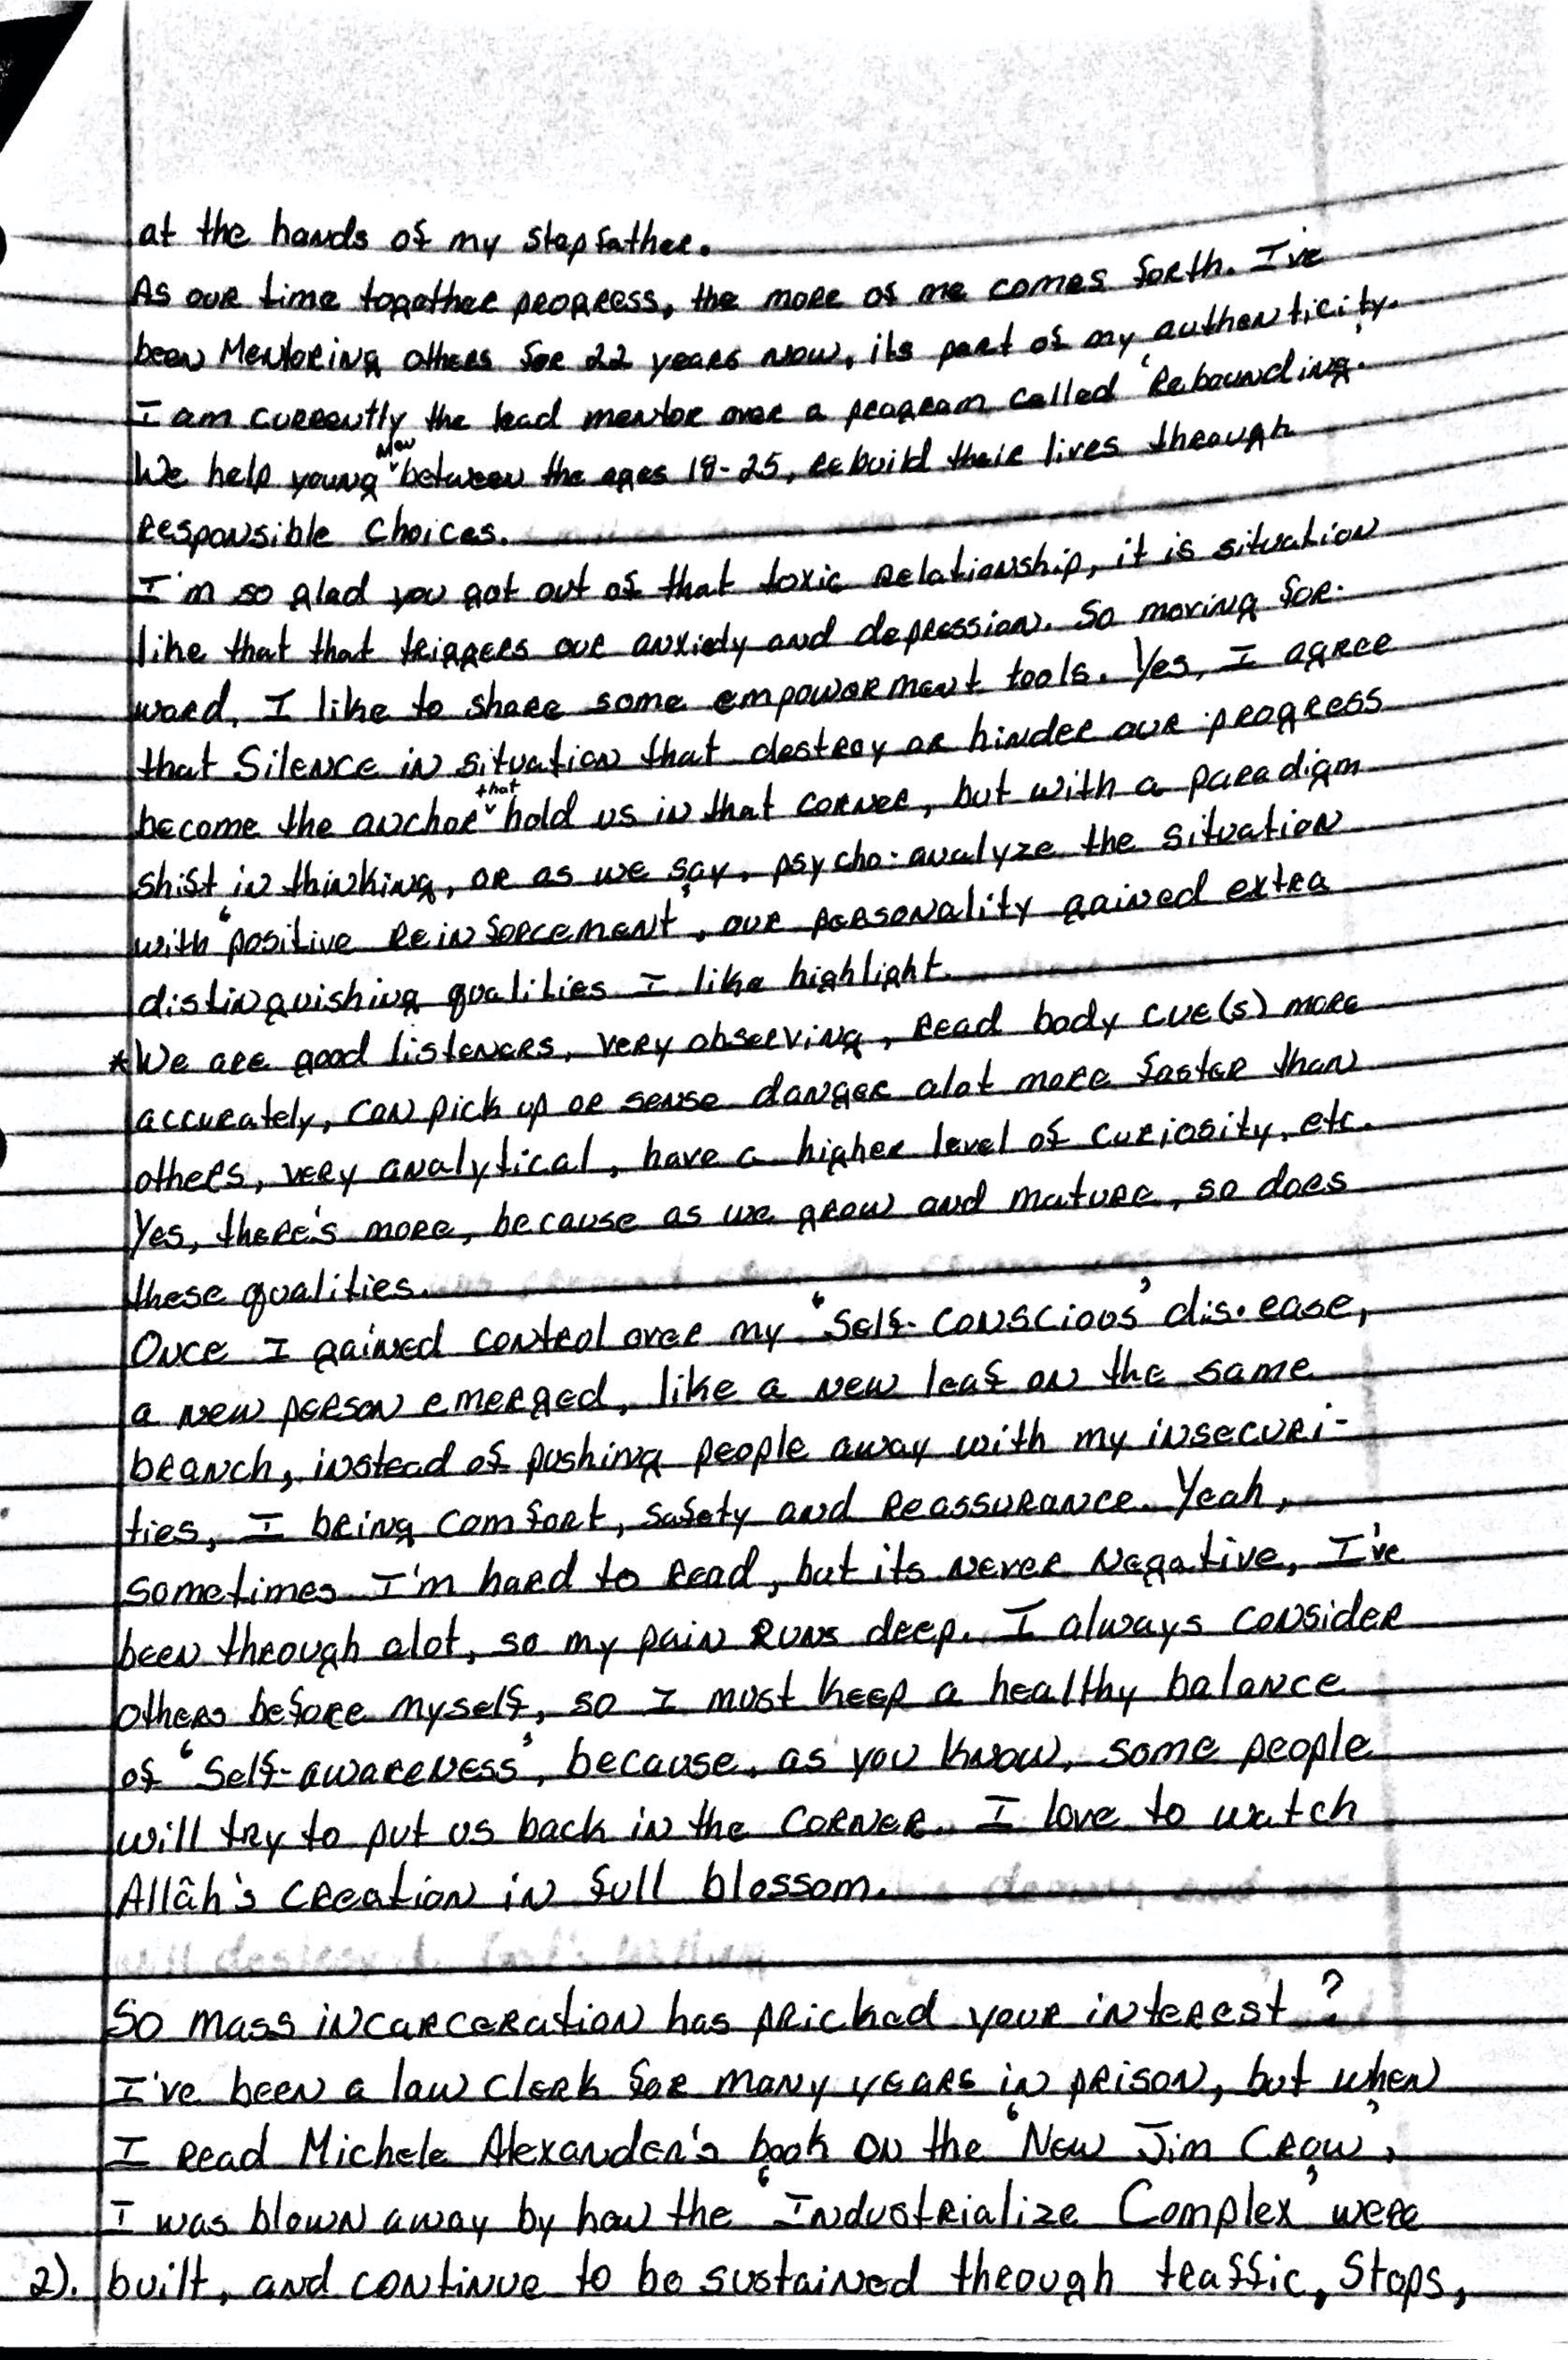 at the hands of my stepfather.
As our time together progress, the more of me comes forth. I've
been Mentoring others for 22 years now, its part of my authenticity.
I am currently the lead mentor over a program called 'Rebounding.'
We help young men between the ages 18-25, rebuild their lives through
Responsible Choices.
I'm so glad you got out of that toxic relationship, it is situation
like that that triggers our anxiety and depression. So moving for-
ward, I like to share some empowerment tools. Yes, I agree
that Silence in situation that destroy or hinder our progress
become the anchor that hold us in that corner, but with a paradigm
shift in thinking, or as we say, psycho-analyze the situation
with 'positive reinforcement', our personality gained extra
distinguishing qualities I like highlight.
*We are good listeners, very observing, read body cue(s) more
accurately, can pick up or sense danger alot more faster than
others, very analytical, have a higher level of curiosity, etc.
Yes, there's more, because as we grow and mature, so does
these qualities.
Once I gained control over my 'Self-conscious' dis-ease,
a new person emerged, like a new leaf on the same
branch, instead of pushing people away with my insecuri-
ties, I bring comfort, safety and reassurance. Yeah,
sometimes I'm hard to read, but its never negative, I've
been through alot, so my pain runs deep. I always consider
others before myself, so I must keep a healthy balance
of 'Self-awareness', because, as you know, some people
will try to put us back in the corner. I love to watch
Allâh's creation in full blossom.
So mass incarceration has pricked your interest?
I've been a law clerk for many years in prison, but when
I read Michele Alexander's book on the 'New Jim Crow',
I was blown away by how the 'Industrialize Complex' were
2). built, and continue to be sustained through traffic, Stops,